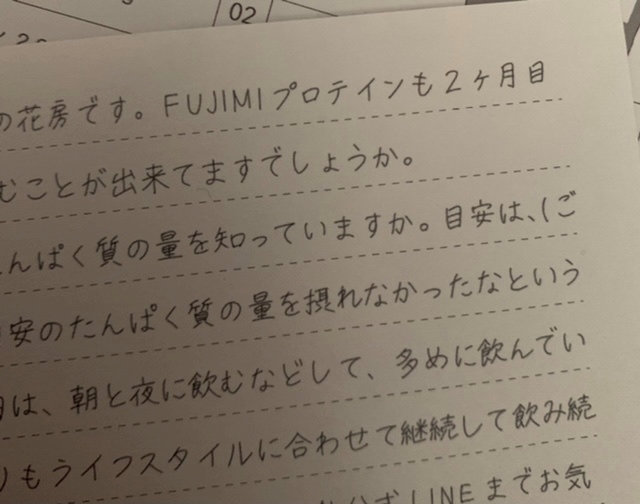 02
の花房です。FUJIMIプロテインも2ヶ月目
むことが出来てますでしょうか。
んぱく質の量を知っていますか。目安は、(ご
安のたんぱく質の量を摂れなかったなという
は、朝と夜に飲むなどして、多めに飲んでい
もライフスタイルに合わせて継続して飲み続
LINEまでお気